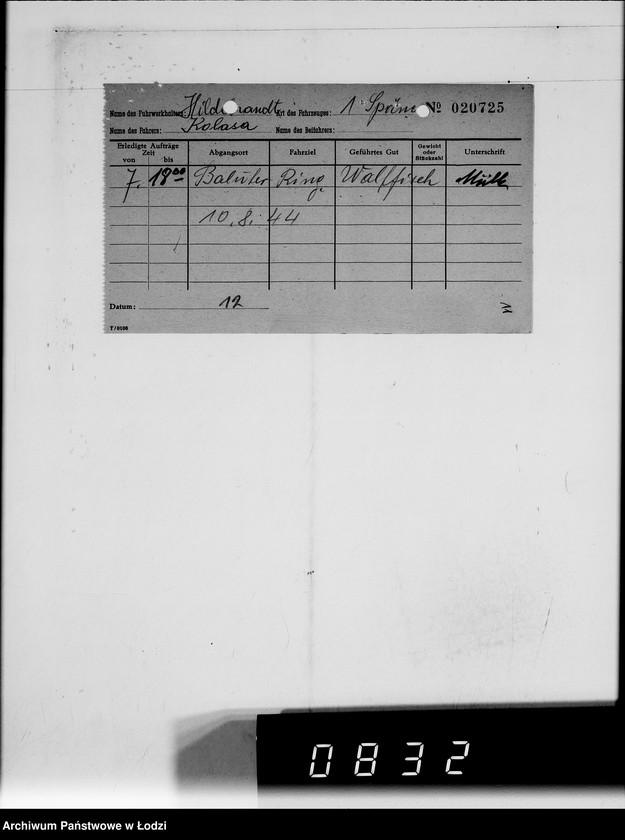 Name des Fuhrwerkhalters: Hildebrandt Art des Fahrzeuges: 1 Spänn № 020725
Name des Fahrers: Kolasa Name des Beifahrers:
Erledigte Aufträge Zeit von bis Abgangsort Fahrziel Geführtes Gut Gewicht oder Stückzahl Unterschrift
7. 18⁰⁰ Baluter Ring Walfisch Müll
10.8.44
Datum: 12
T/0106
0832
Archiwum Państwowe w Łodzi